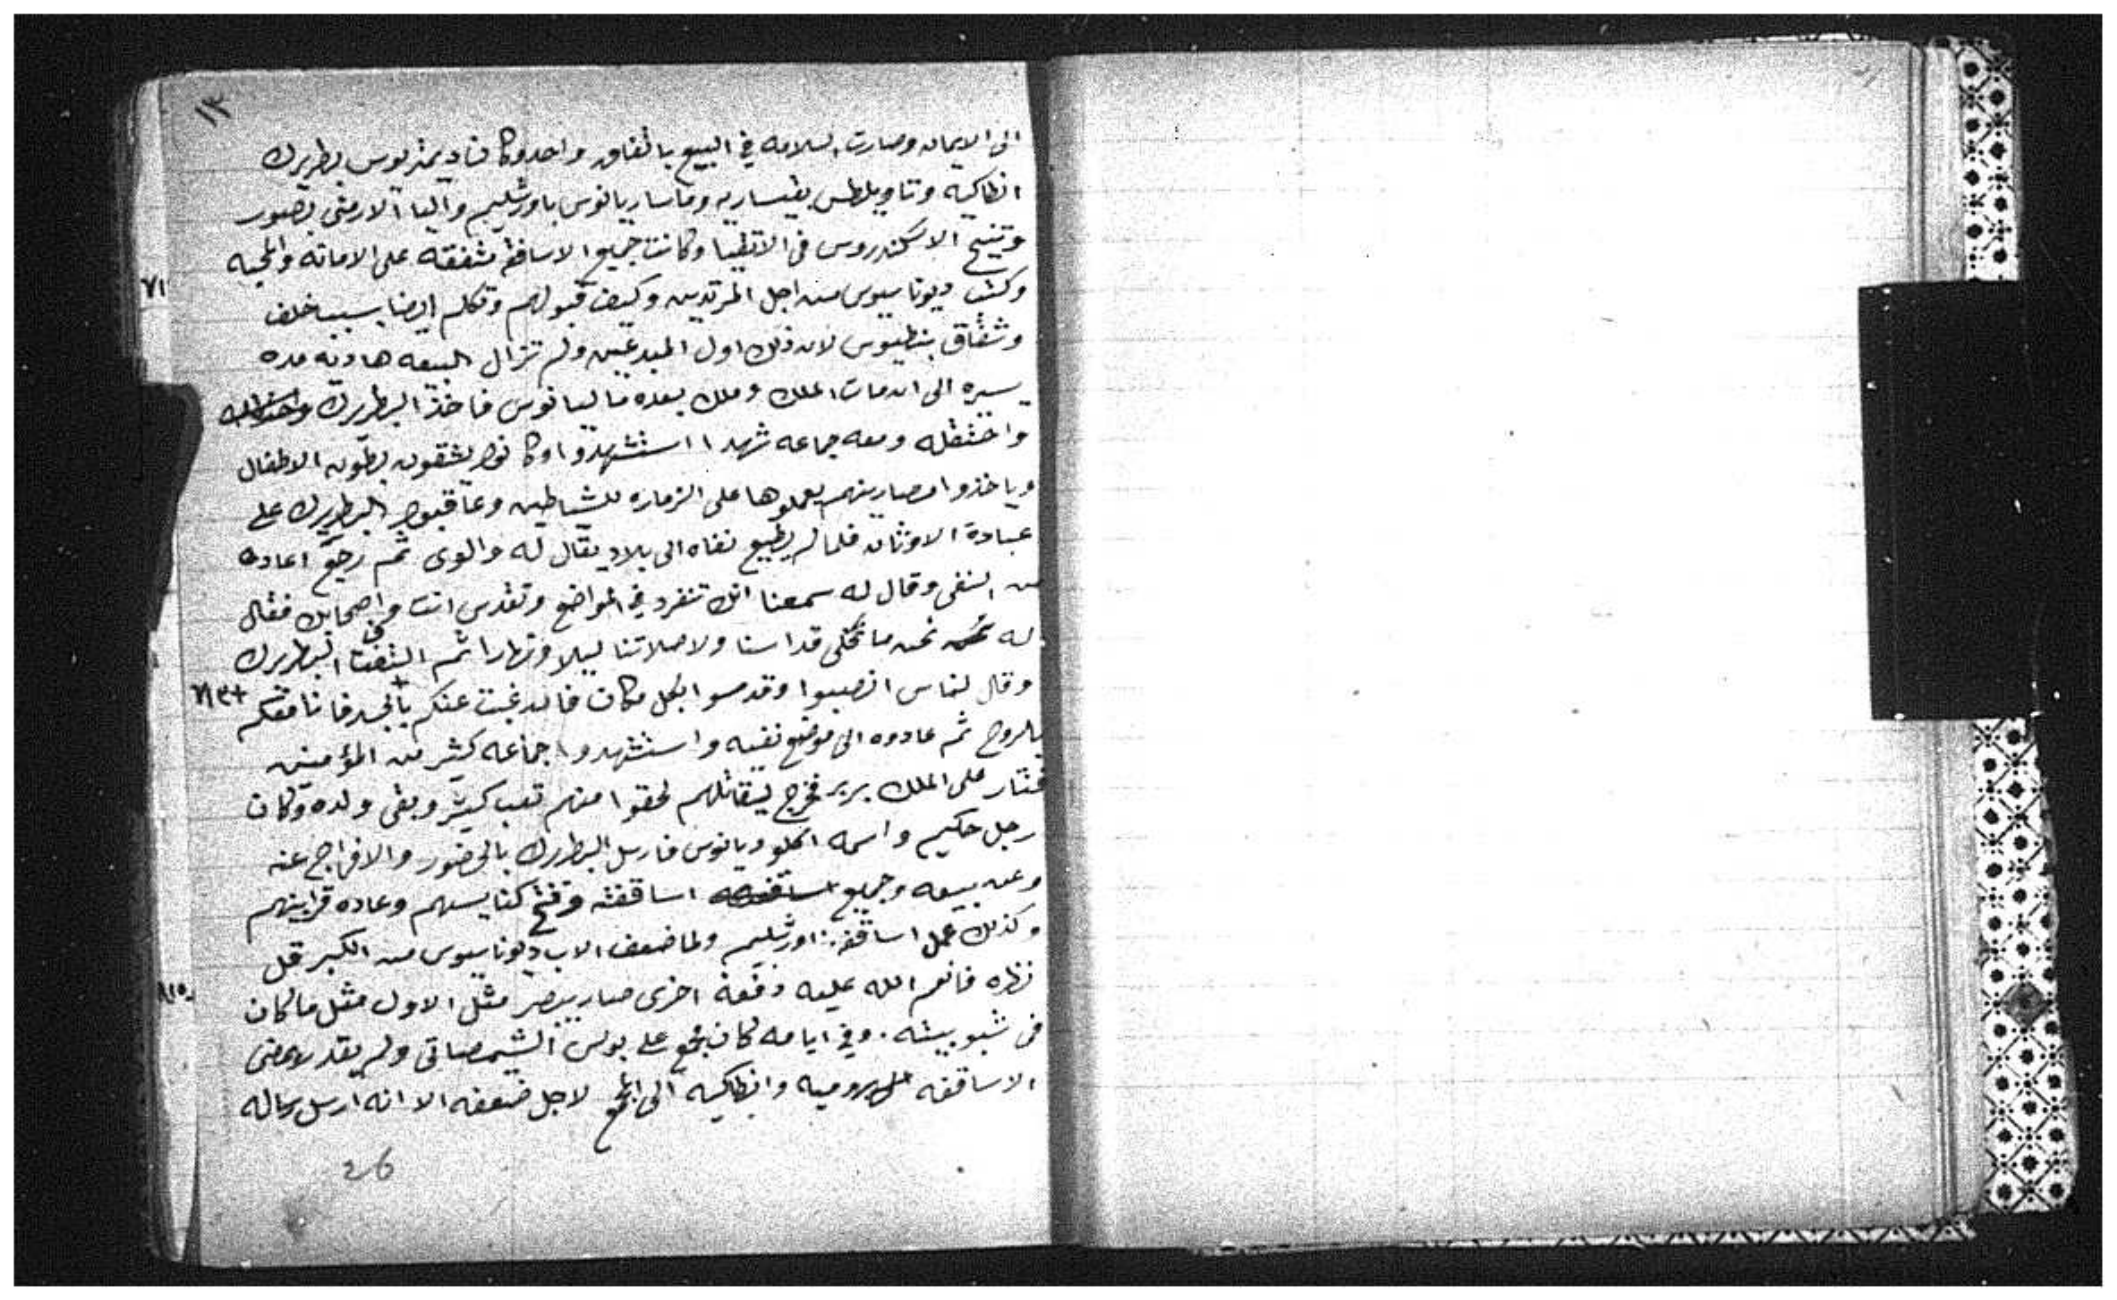 ١٣
الى الايمان وصارت السلامه في البيع باتفاق واحد وكان ديمتريوس بطريرك
انطاكية وتاوبلطس بقيساريه وماساريانوس باورشليم والبا الارمنى بصور
وتنيح الاسكندروس فى الاتقيا وكانت جميع الاساقفه متفقه على الامانه والمحبه
وكتب ديوناسيوس من اجل المرتدين وكيف قبولهم وتكلم ايضا بسبب خلف
وشقاق بنطيوس لان ذلك اول المبدعين ولم تزال البيعه هاديه مده
يسيره الى ان مات الملك وملك بعده ماليانوس فاخذ البطريرك
واعتقله ومعه جماعه شهدا استشهدوا وكانوا يشقون بطون الاطفال
وياخذوا مصارينهم يعملوها على الزماره للشياطين وعاقبوا البطريرك على
عبادة الاوثان فلما لم يطيع نفاه الى بلاد يقال له والوى ثم رجع اعاده
من النفى وقال له سمعنا انك تنفرد في المواضع وتقدس انت واصحابك فقال
له نحن ما نخلى قداسنا ولا صلاتنا ليلا ونهارا ثم التفت البطريرك
وقال لناس انصبوا وقدسوا بكل مكان فان غبت عنكم بالجسد فانا معكم
بالروح ثم عادوه الى موضع نفيه واستشهدوا جماعه كثير من المؤمنين
فثار على الملك بربر فخرج ليقاتلهم لحقوا منهم تعب كثير وبقى ولده وكان
رجل حكيم واسمه اكلوديانوس فارسل البطريرك بالحضور والافراج عنه
وعن بيعه وجميع اساقفته وفتح كنايسهم وعاده قرابينهم
وكذلك عمل اساقفة اورشليم ولما ضعف الاب ديوناسيوس من الكبر قل
نظره فانعم الله عليه دفعة اخرى صار يبصر مثل الاول مثل ما كان
فى شبوبيته. وفي ايامه كان مجمع على بولس الشيمصاتى ولم يقدر يمضى
الاساقفه روميه وانطاكيه الى المجمع لاجل ضعفه الا انه ارسل رساله
26